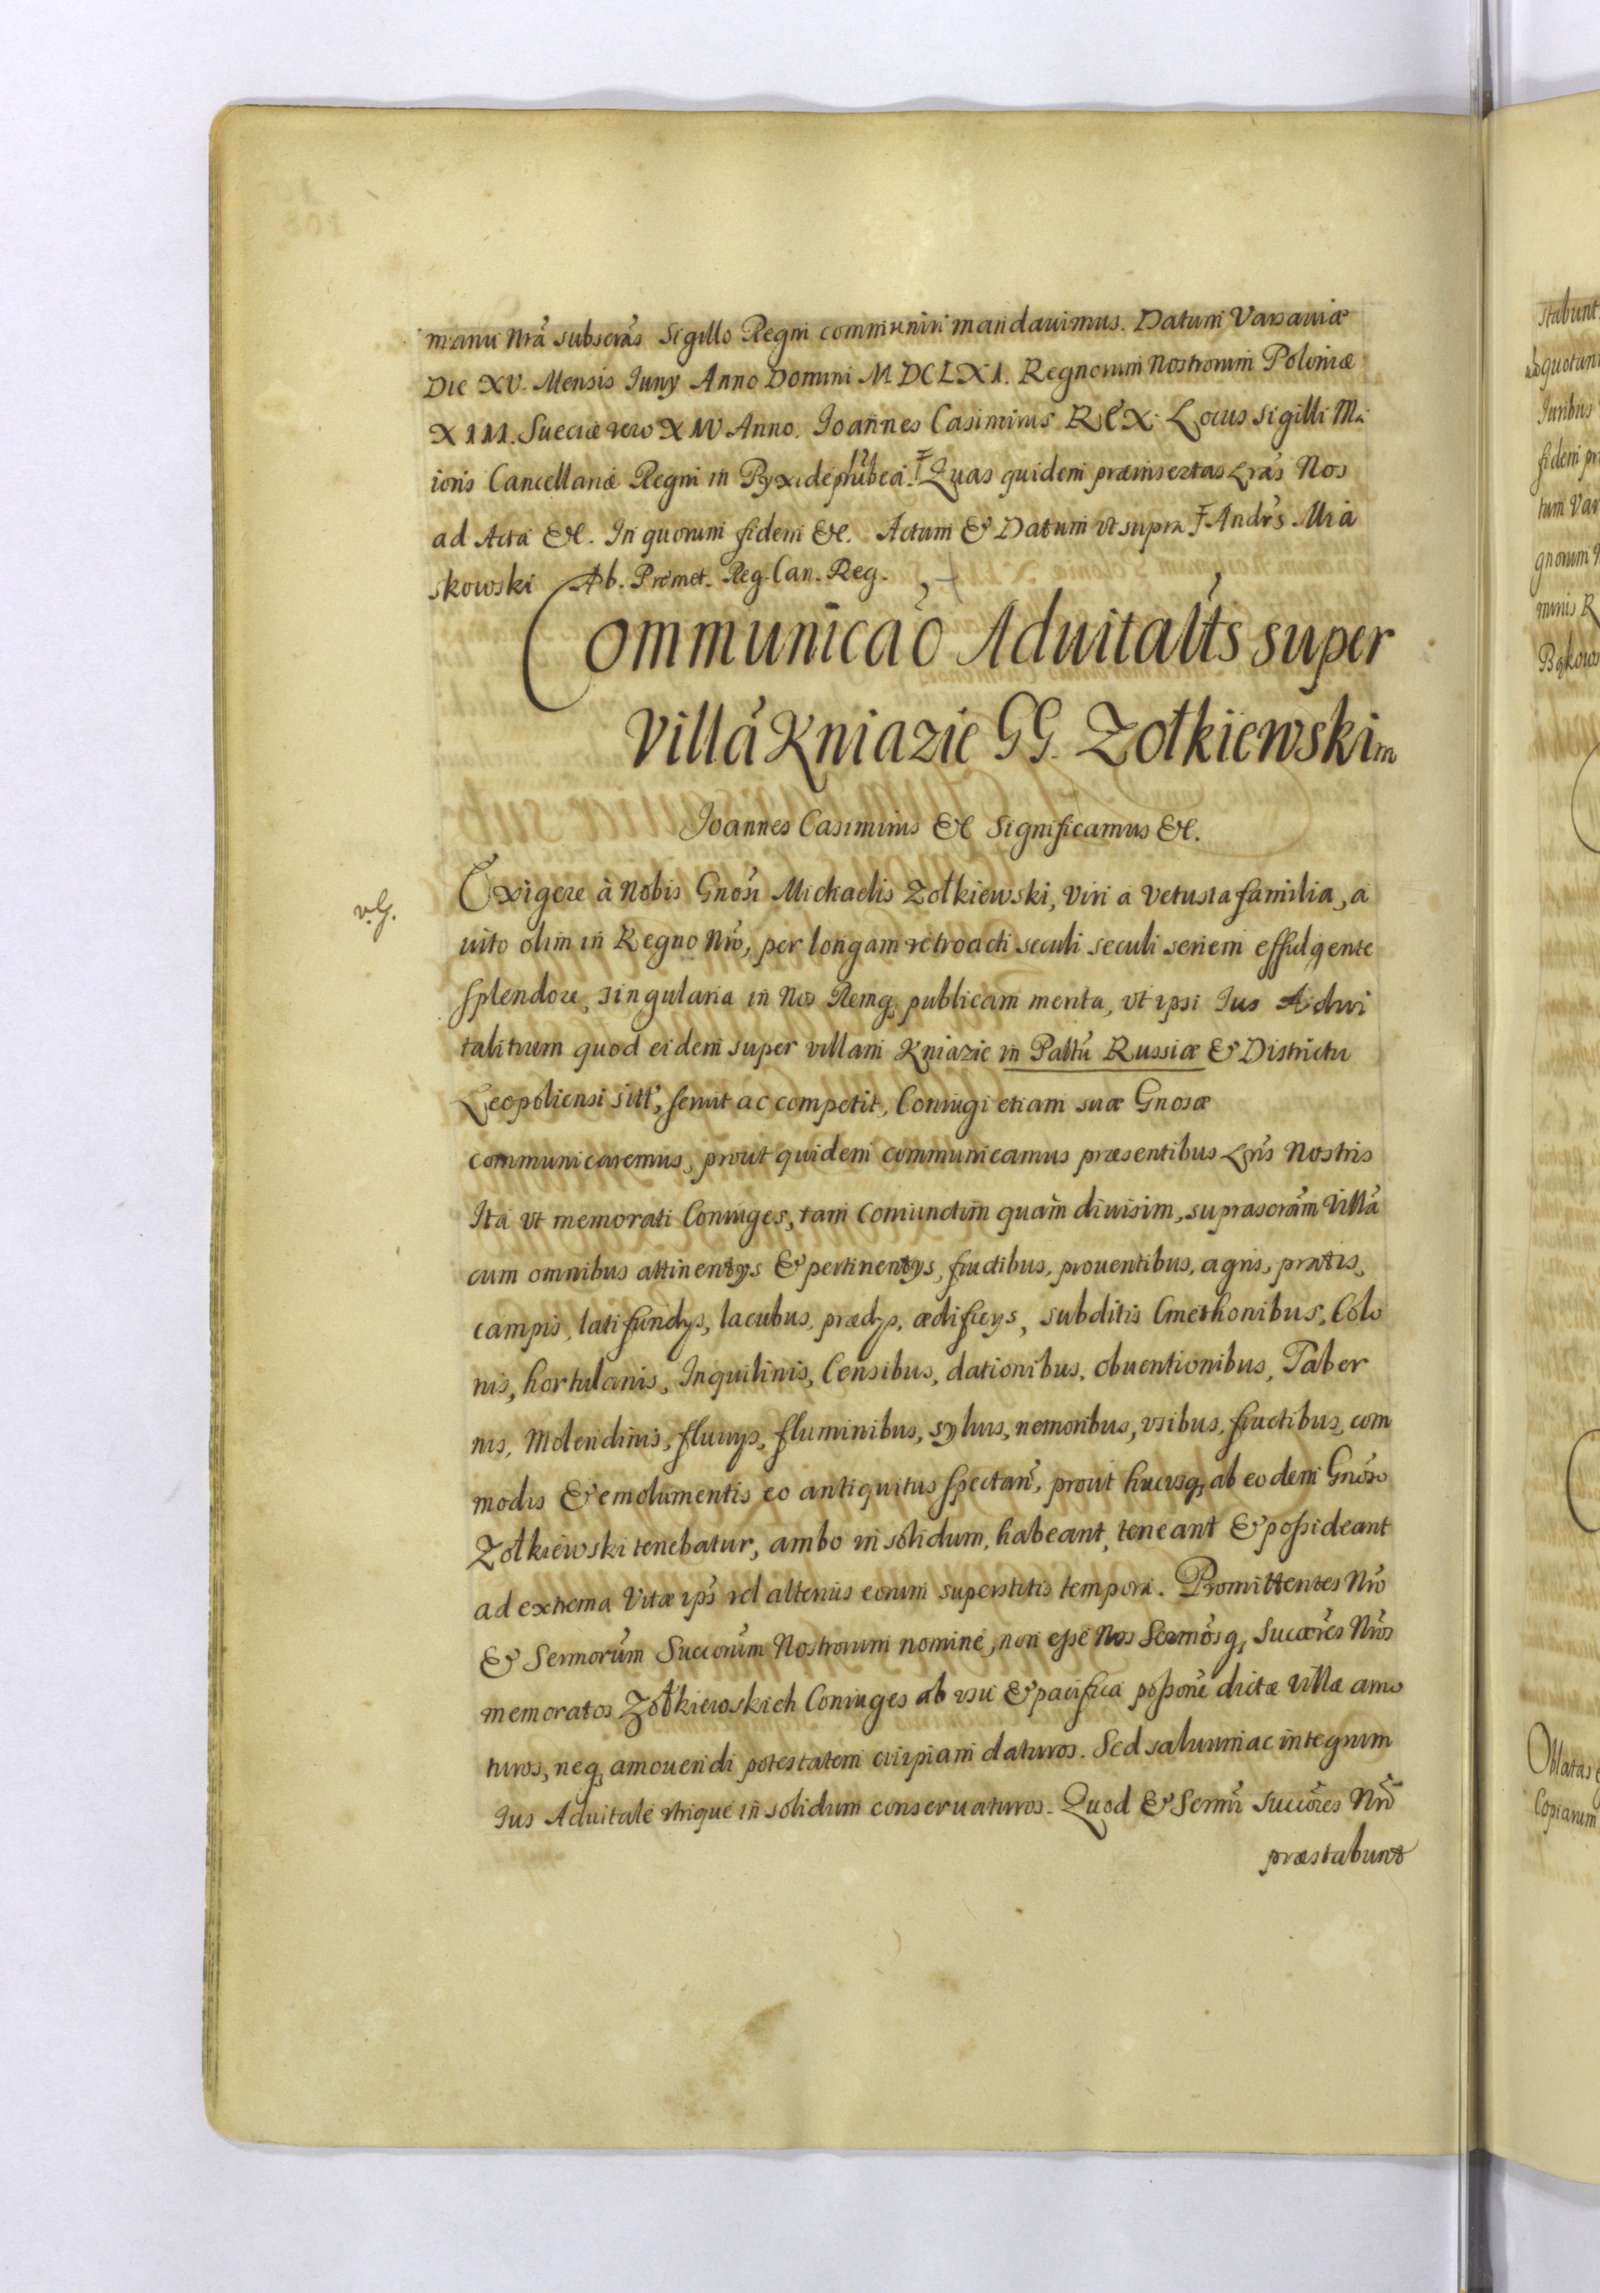 manu Nrã subscrãs Sigillo Regni communiri mandauimus. Datum Varsauiæ
Die XV. Mensis Iuny Anno Domini MDCLXI. Regnorum Nostrorum Poloniæ
XIII. Sueciæ vero XIV Anno. Ioannes Casimirus REX. Locus sigilli Ma
ioris Cancellariæ Regni in Pyxide Quas quidem præinsertas Lrãs Nos
ad Acta &c. In quorum fidem &c. Actum & Datum vt supra Andrs Mia
skowski Ab. Præmet. Reg. Can. Reg.
Communicaõ Aduitalits super
Villã Kniazie GG. Zołkiewskim
Ioannes Casimirus &c Significamus &c.
v.G.
Exigere à Nobis Gnosi Michaelis Zołkiewski, Viri a Vetusta familia, a
uito olim in Regno Nro, per longam retroacti seculi seculi seriem effulgente
splendore, singularia in Nos Remq publicam merita, vt ipsi Ius Adui
talitium quod eidem super villam Kniazie in Pallũ Russiæ & Districtu
Leopoliensi sitt, seruit ac competit, Coniugi etiam suæ Gnosæ
communicaremus, prout quidem communicamus præsentibus Lris Nostris
Ita vt memorati Coniuges, tam coniunctim quàm diuisim, suprascrãm Villã
cum omnibus attinentys & pertinentys, fructibus, prouentibus, agris, pratis,
campis, latifundys, lacubus, prædys, ædificys, subditis Cmethonibus, Colo
nis, hortulanis, Inquilinis, Censibus, dationibus, obuentionibus, Taber
nis, Molendinis, fluuys, fluminibus, syluis, nemoribus, vsibus, fructibus, com
modis & emolumentis eo antiquitus spectan, prout hucusq, ab eodem Gnoso
Zołkiewski tenebatur, ambo in solidum, habeant, teneant & possideant
ad extrema Vitæ ips vel alterius eorum superstitis tempora. Promittentes Nro
& Sermorũm Succorũm Nostrorum nomine, non esse Nos Sermosq, Succores Nros
memoratos Zołkiewskich Coniuges ab vsu & pacifica possone dictæ Villæ amo
turos, neq, amouendi potestatem cuipiam daturos. Sed saluum ac integrum
Ius Aduitale vtrique in solidum conseruaturos. Quod & Sermi Succores Nri
præstabunt